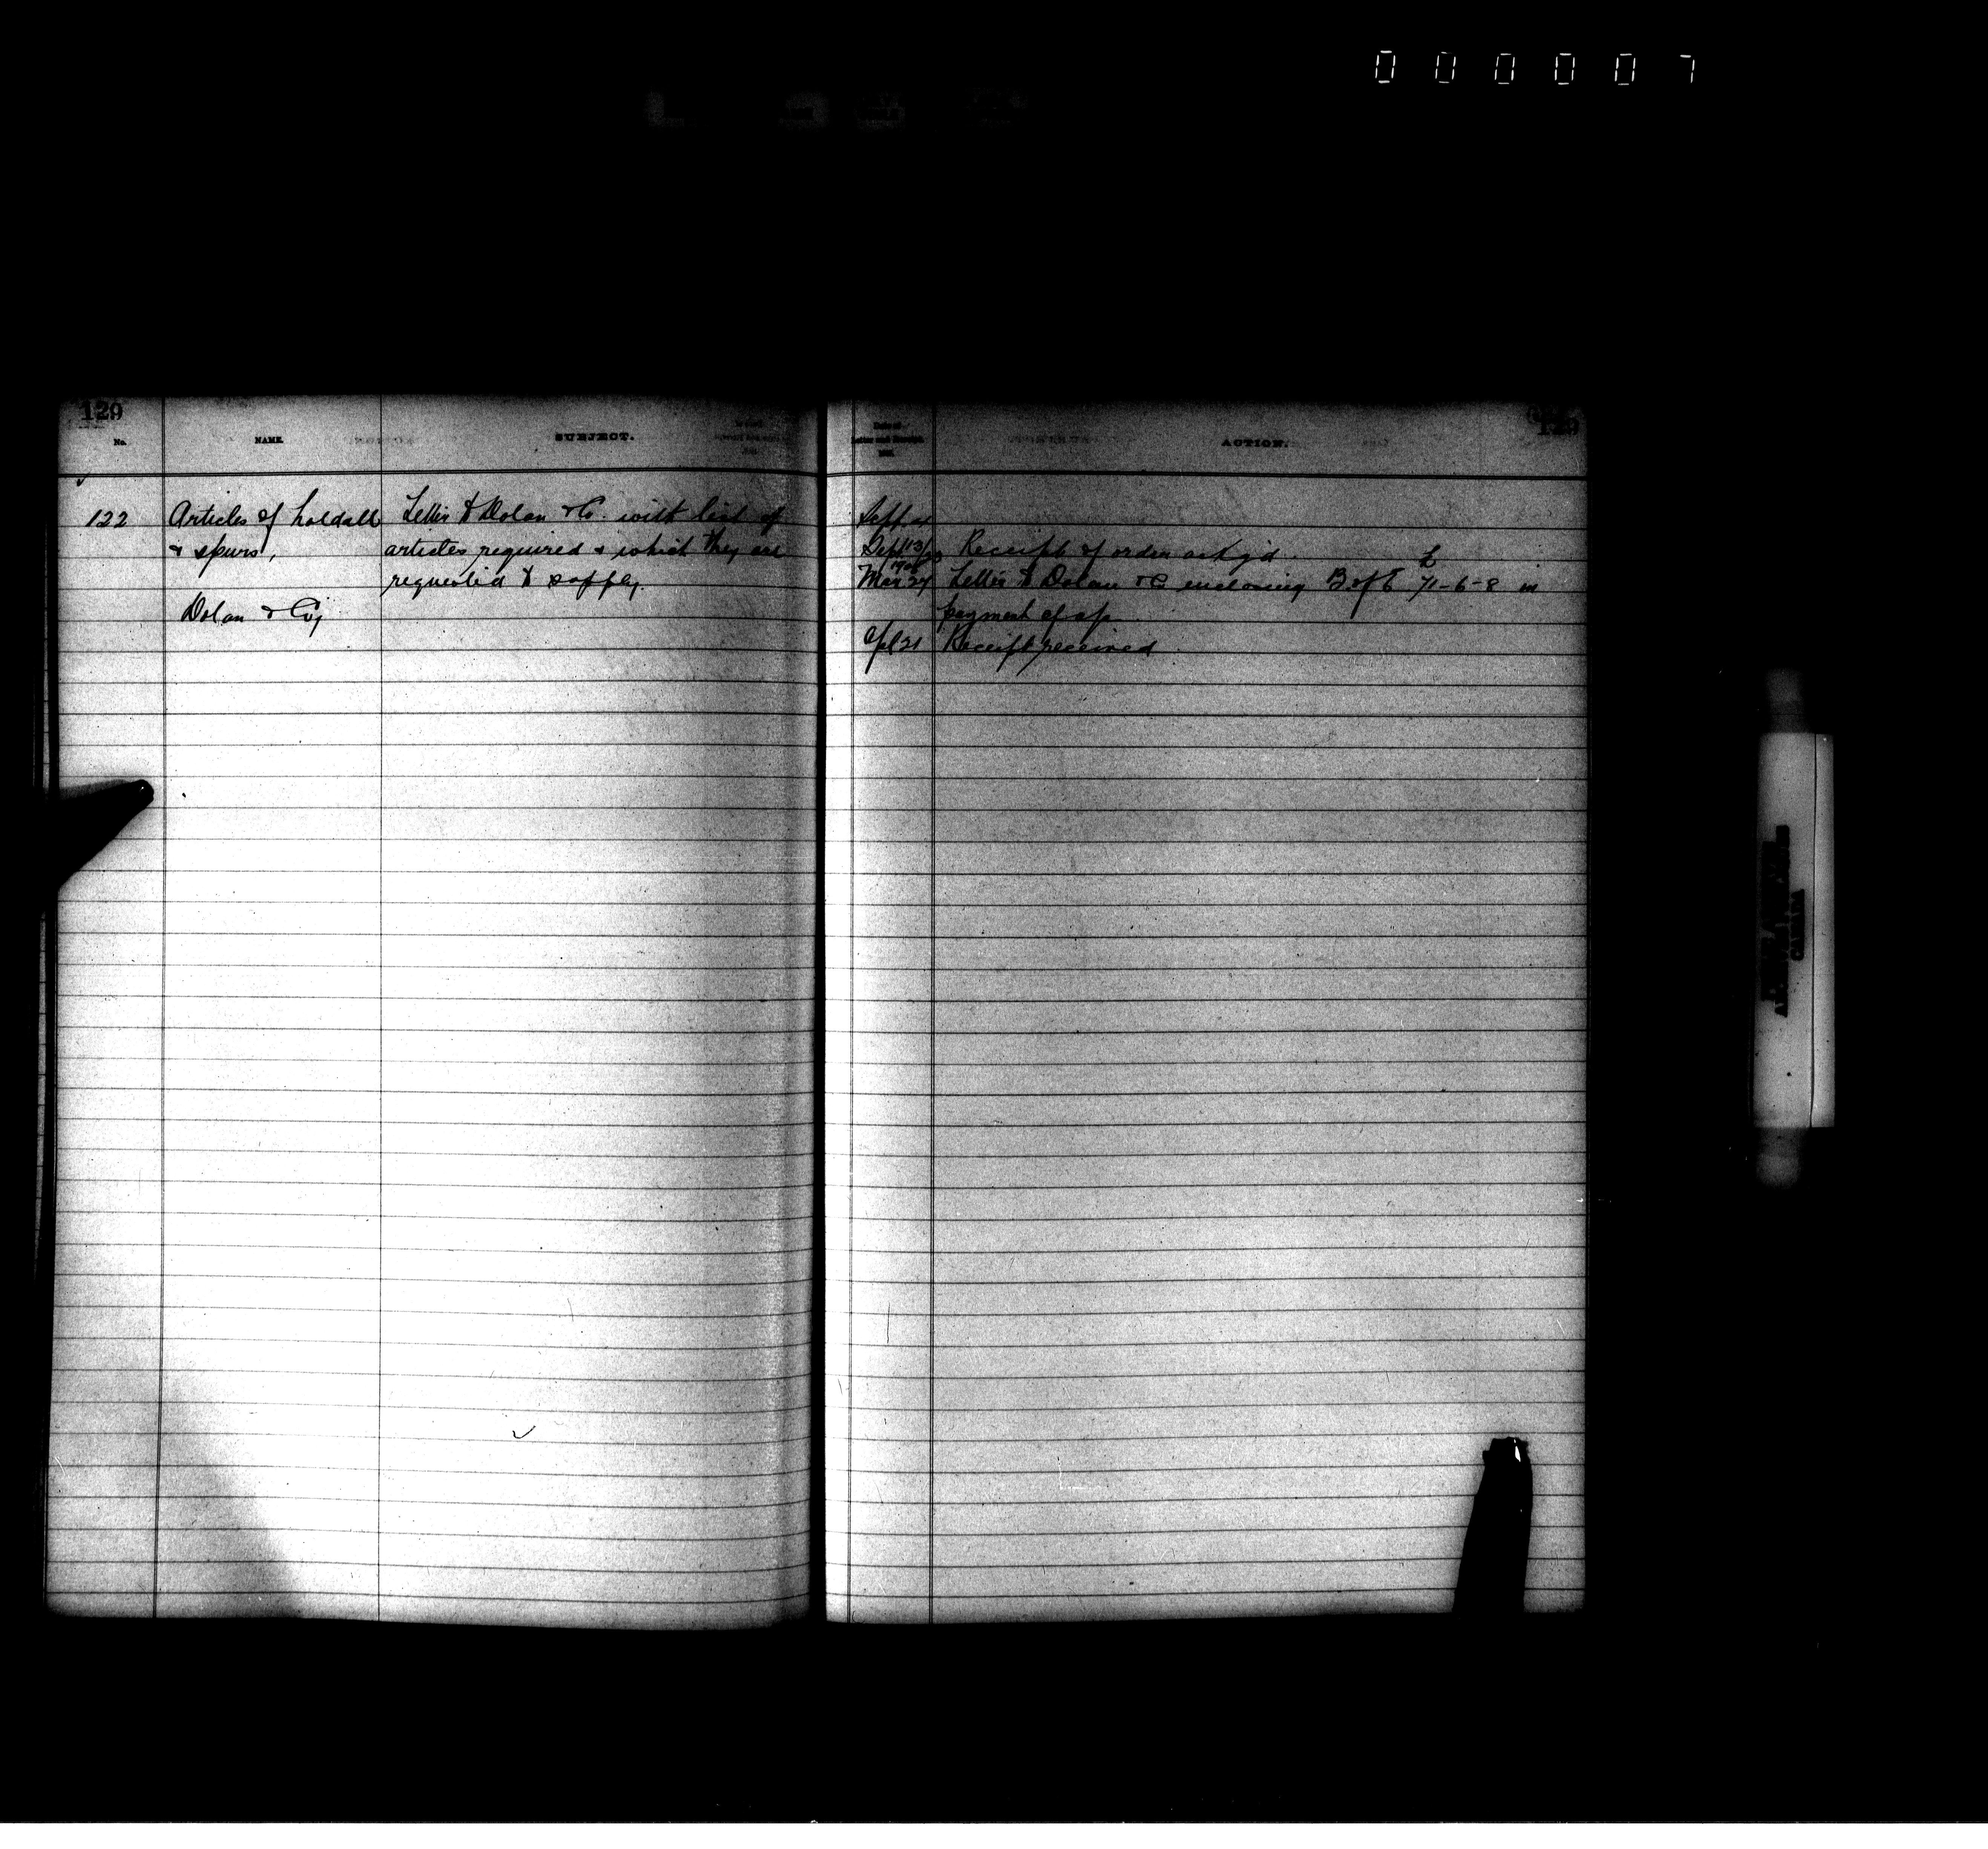 000007
129
129
No.
NAME.
SUBJECT.
Date of
Letter and Receipt.
ACTION.
122
Articles of holdall
& spurs,
Dolan & Coy
Letter to Dolan & Co. with list of
articles required & which they are
requested to supply.
Sept
Sept 13/
Receipt of order ack'g'd.
Mar 27
Letter to Dolan & C enclosing B. of E £71-6-8 in
payment of a/c
Apl 21
Receipt received